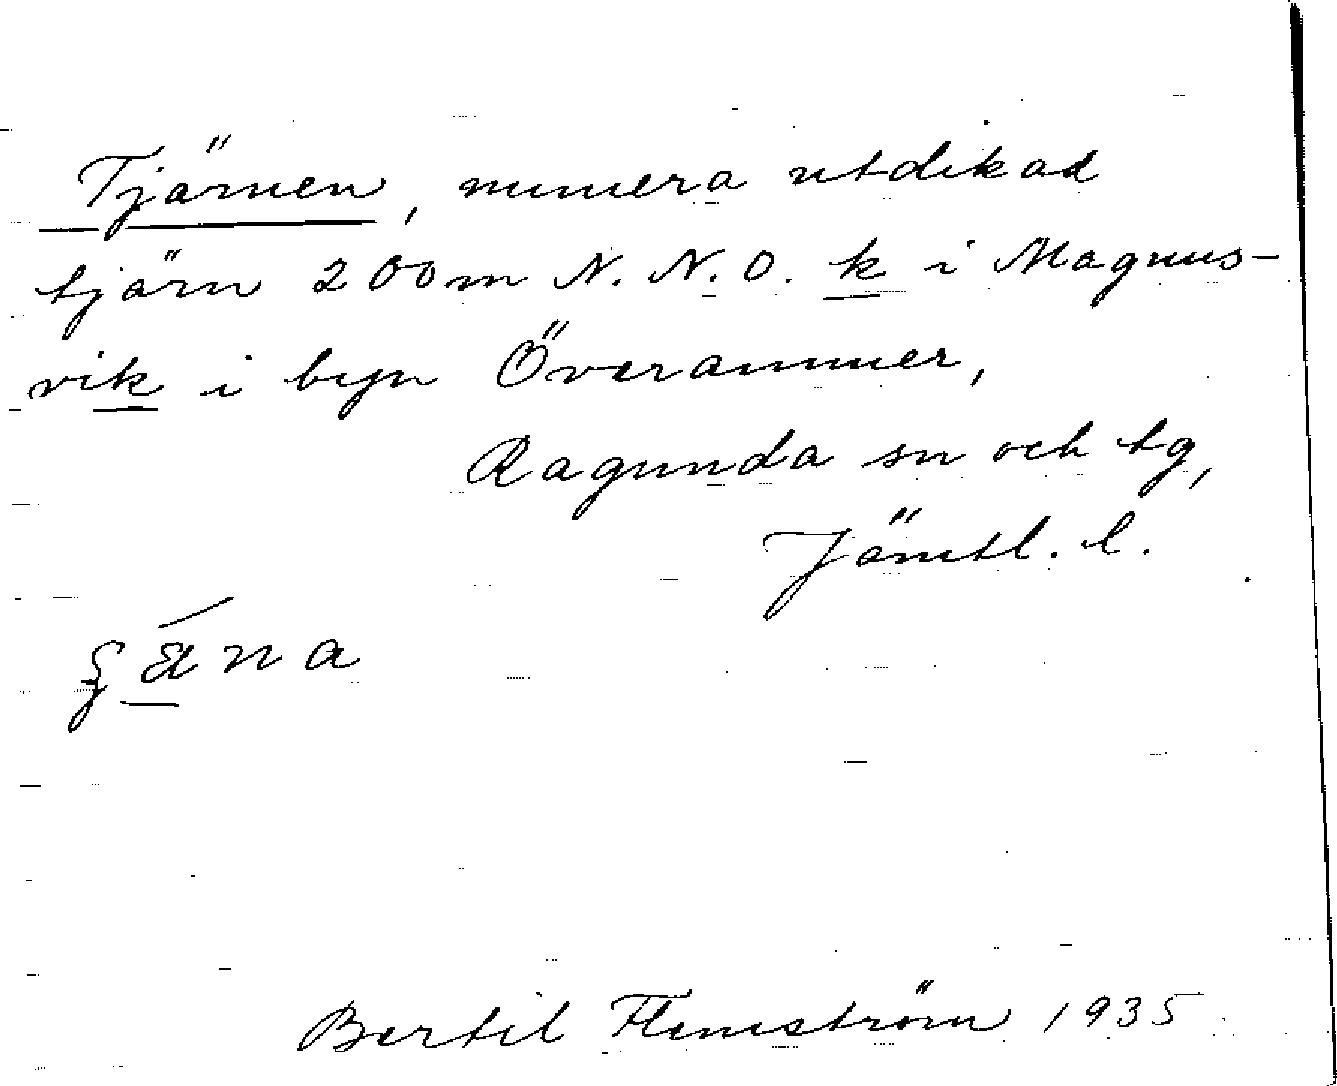 Tjärnen, numera utdikad
tjärn 200m N. N. O. k i Magnus-
vik i byn Överammer,
Ragunda sn och tg,
Jämtl. l.
Bertil Flemström 1935